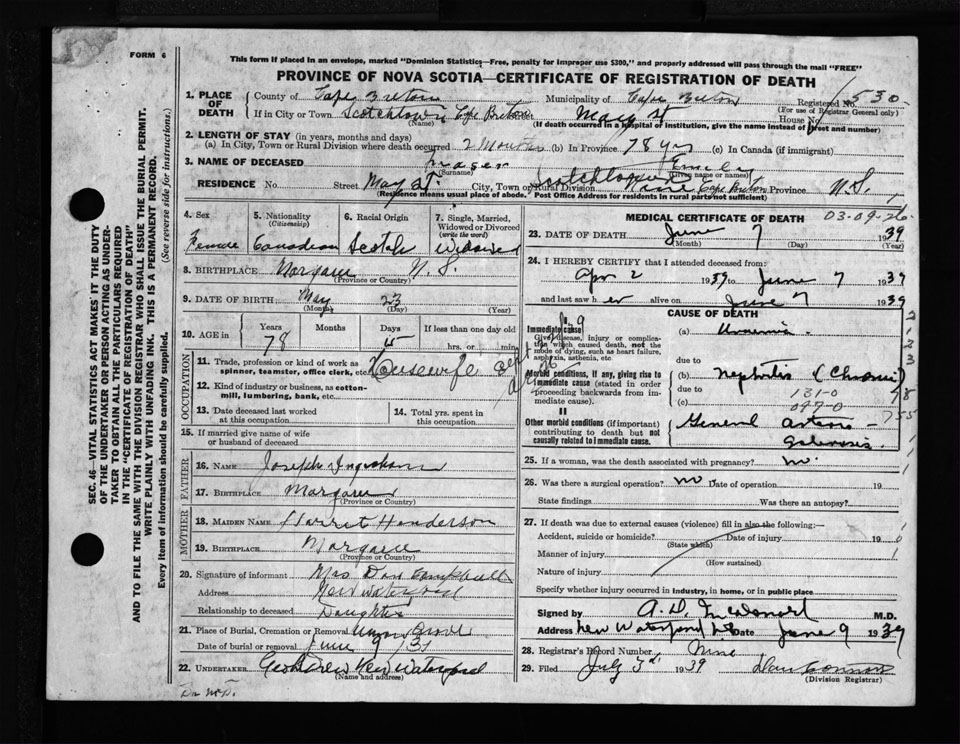 FORM 6
This form if placed in an envelope, marked "Dominion Statistics—Free, penalty for improper use $300," and properly addressed will pass through the mail "FREE"
PROVINCE OF NOVA SCOTIA—CERTIFICATE OF REGISTRATION OF DEATH
SEC. 46—VITAL STATISTICS ACT MAKES IT THE DUTY
OF THE UNDERTAKER OR PERSON ACTING AS UNDER-
TAKER TO OBTAIN ALL THE PARTICULARS REQUIRED
IN THE "CERTIFICATE OF REGISTRATION OF DEATH"
AND TO FILE THE SAME WITH THE DIVISION REGISTRAR WHO SHALL ISSUE THE BURIAL PERMIT.
WRITE PLAINLY WITH UNFADING INK. THIS IS A PERMANENT RECORD.
Every item of information should be carefully supplied. (See reverse side for instructions.)
1. PLACE OF DEATH County of Cape Breton Municipality of Cape Breton Registered No. 530
(For use of Registrar General only)
If in City or Town Scotchtown Cape Breton May St House No.
(Name) (If death occurred in a hospital or institution, give the name instead of street and number)
2. LENGTH OF STAY (in years, months and days)
(a) In City, Town or Rural Division where death occurred 2 Months (b) In Province 78 yrs (c) In Canada (if immigrant)
3. NAME OF DECEASED Fraser Emily
(Surname) (Given name or names)
RESIDENCE No. Street May St. City, Town or Rural Division Scotchtown Cape Breton Province N.S.
(Residence means usual place of abode. Post Office Address for residents in rural parts not sufficient)
4. Sex 5. Nationality (Citizenship) 6. Racial Origin 7. Single, Married, Widowed or Divorced (write the word)
Female Canadian Scotch Widowed
8. BIRTHPLACE Margaree N.S.
(Province or Country)
9. DATE OF BIRTH May 23
(Month) (Day) (Year)
10. AGE in Years Months Days If less than one day old
78 hrs. or min.
OCCUPATION
11. Trade, profession or kind of work as spinner, teamster, office clerk, etc. Housewife
12. Kind of industry or business, as cotton-mill, lumbering, bank, etc.
13. Date deceased last worked at this occupation 14. Total yrs. spent in this occupation
15. If married give name of wife or husband of deceased
FATHER
16. NAME Joseph Ingraham
17. BIRTHPLACE Margaree
(Province or Country)
MOTHER
18. MAIDEN NAME Harriet Henderson
19. BIRTHPLACE Margaree
(Province or Country)
20. Signature of informant Mrs Dan Campbell
Address New Waterford
Relationship to deceased Daughter
21. Place of Burial, Cremation or Removal Grove
Date of burial or removal June 9/39
22. UNDERTAKER New Waterford
(Name and address)
MEDICAL CERTIFICATE OF DEATH
03-09-26
23. DATE OF DEATH June 7 1939
(Month) (Day)
24. I HEREBY CERTIFY that I attended deceased from:
Apr 2 1939 to June 7 1939
and last saw her alive on June 7 1939
CAUSE OF DEATH
I
Immediate cause
Give disease, injury or complication which caused death, not the mode of dying, such as heart failure, asphyxia, asthenia, etc.
(a) Uraemia
due to
Morbid conditions, if any, giving rise to immediate cause (stated in order proceeding backwards from immediate cause).
(b) Nephritis (Chronic)
due to 131-0
(c) 097-0
II
Other morbid conditions (if important) contributing to death but not causally related to immediate cause.
General Arterio-
25. If a woman, was the death associated with pregnancy? no.
26. Was there a surgical operation? no Date of operation 19
State findings Was there an autopsy?
27. If death was due to external causes (violence) fill in also the following:—
Accident, suicide or homicide? Date of injury 19
(State which)
Manner of injury
(How sustained)
Nature of injury
Specify whether injury occurred in Industry, in home, or in public place
Signed by M.D.
Address New Waterford NS Date June 9 1939
28. Registrar's Record Number Nine
29. Filed July 3rd 1939
(Division Registrar)